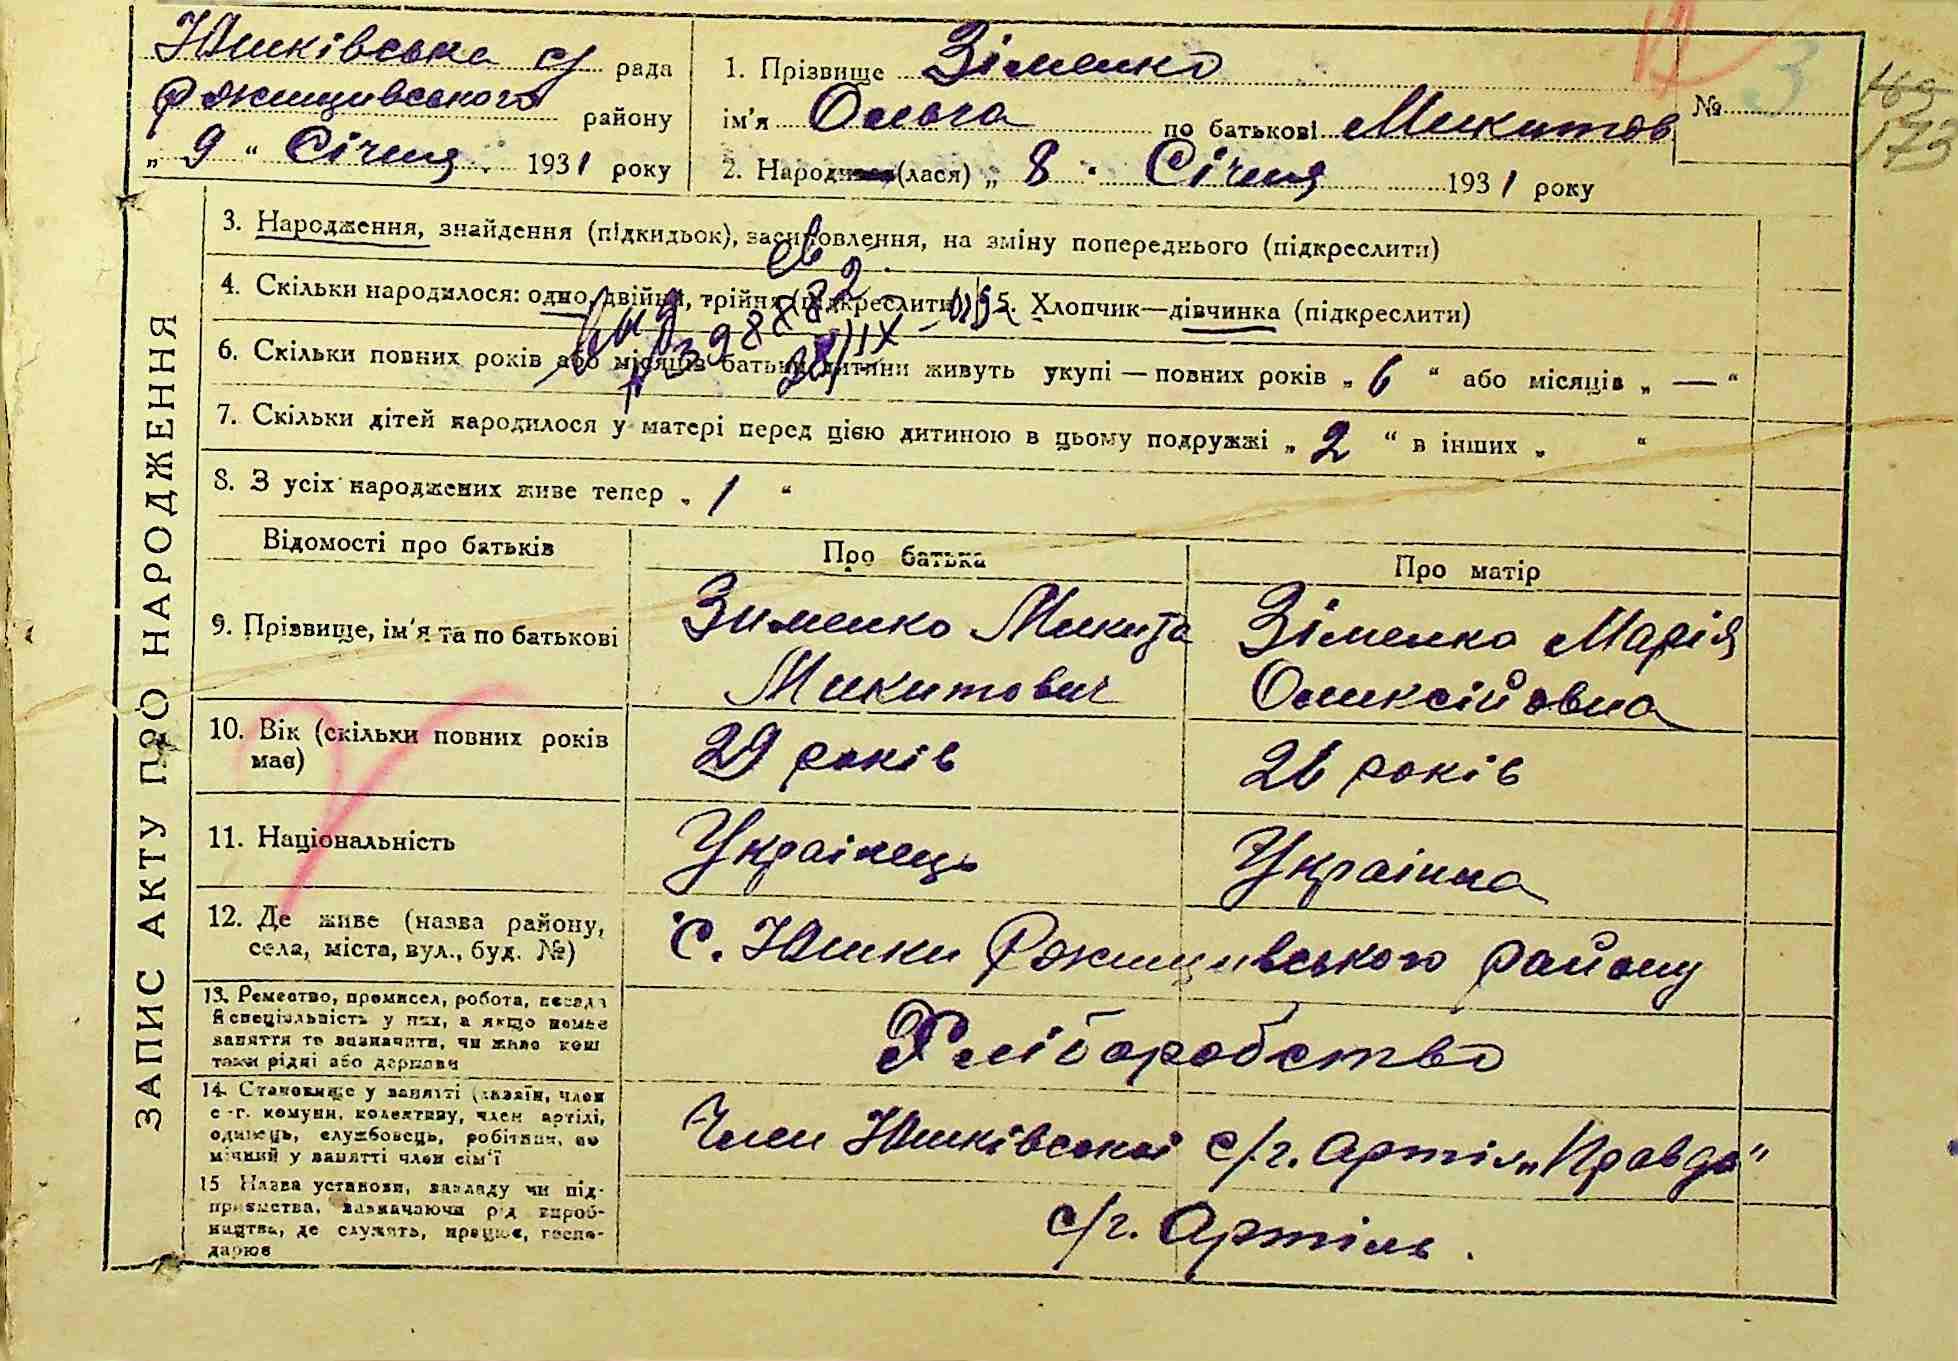 Юшківська с/ рада
Ржищивського району
„ 9 “ Січня 1931 року
1. Прізвище Зіменко
ім'я Ольга по батькові Микитов
2. Народи (лася) „ 8 . Січня 1931 року
№ 3
169
173
ЗАПИС АКТУ ПРО НАРОДЖЕННЯ
3. Народження, знайдення (підкидьок), засиновлення, на зміну попереднього (підкреслити)
4. Скільки народилося: одно, двійня, трійня (підкреслити) 5. Хлопчик—дівчинка (підкреслити)
6. Скільки повних років або місяців батьки дитини живуть укупі — повних років „ 6 “ або місяців „ — “
7. Скільки дітей народилося у матері перед цією дитиною в цьому подружжі „ 2 “ в інших „ “
8. З усіх народжених живе тепер „ 1 “
Відомості про батьків Про батька Про матір
9. Прізвище, ім'я та по батькові
Зименко Микита
Микитович
Зіменко Марія
Оликсійовна
10. Вік (скільки повних років
має)
29 років
26 років
11. Національність
Украінець
Украінка
12. Де живе (назва району,
села, міста, вул., буд. №)
с. Юшки Ржищивського району
13. Ремество, промисел, робота, посада
й спеціяльність у них, а якщо немає
заняття то зазначити, чи живе кош
тами рідні або держави
Хліборобство
14. Становище у занятті (хазяїн, член
с.-г. комуни, колективу, член артілі,
одинець, службовець, робітник, по
мічний у занятті член сім'ї
Член Юшківськоі с/г. Артіл „Правда"
15 Назва установи, закладу чи під-
приємства, зазначаючи рід вироб-
ництва, де служить, працює, госпо-
дарює
с/г. Артіль.